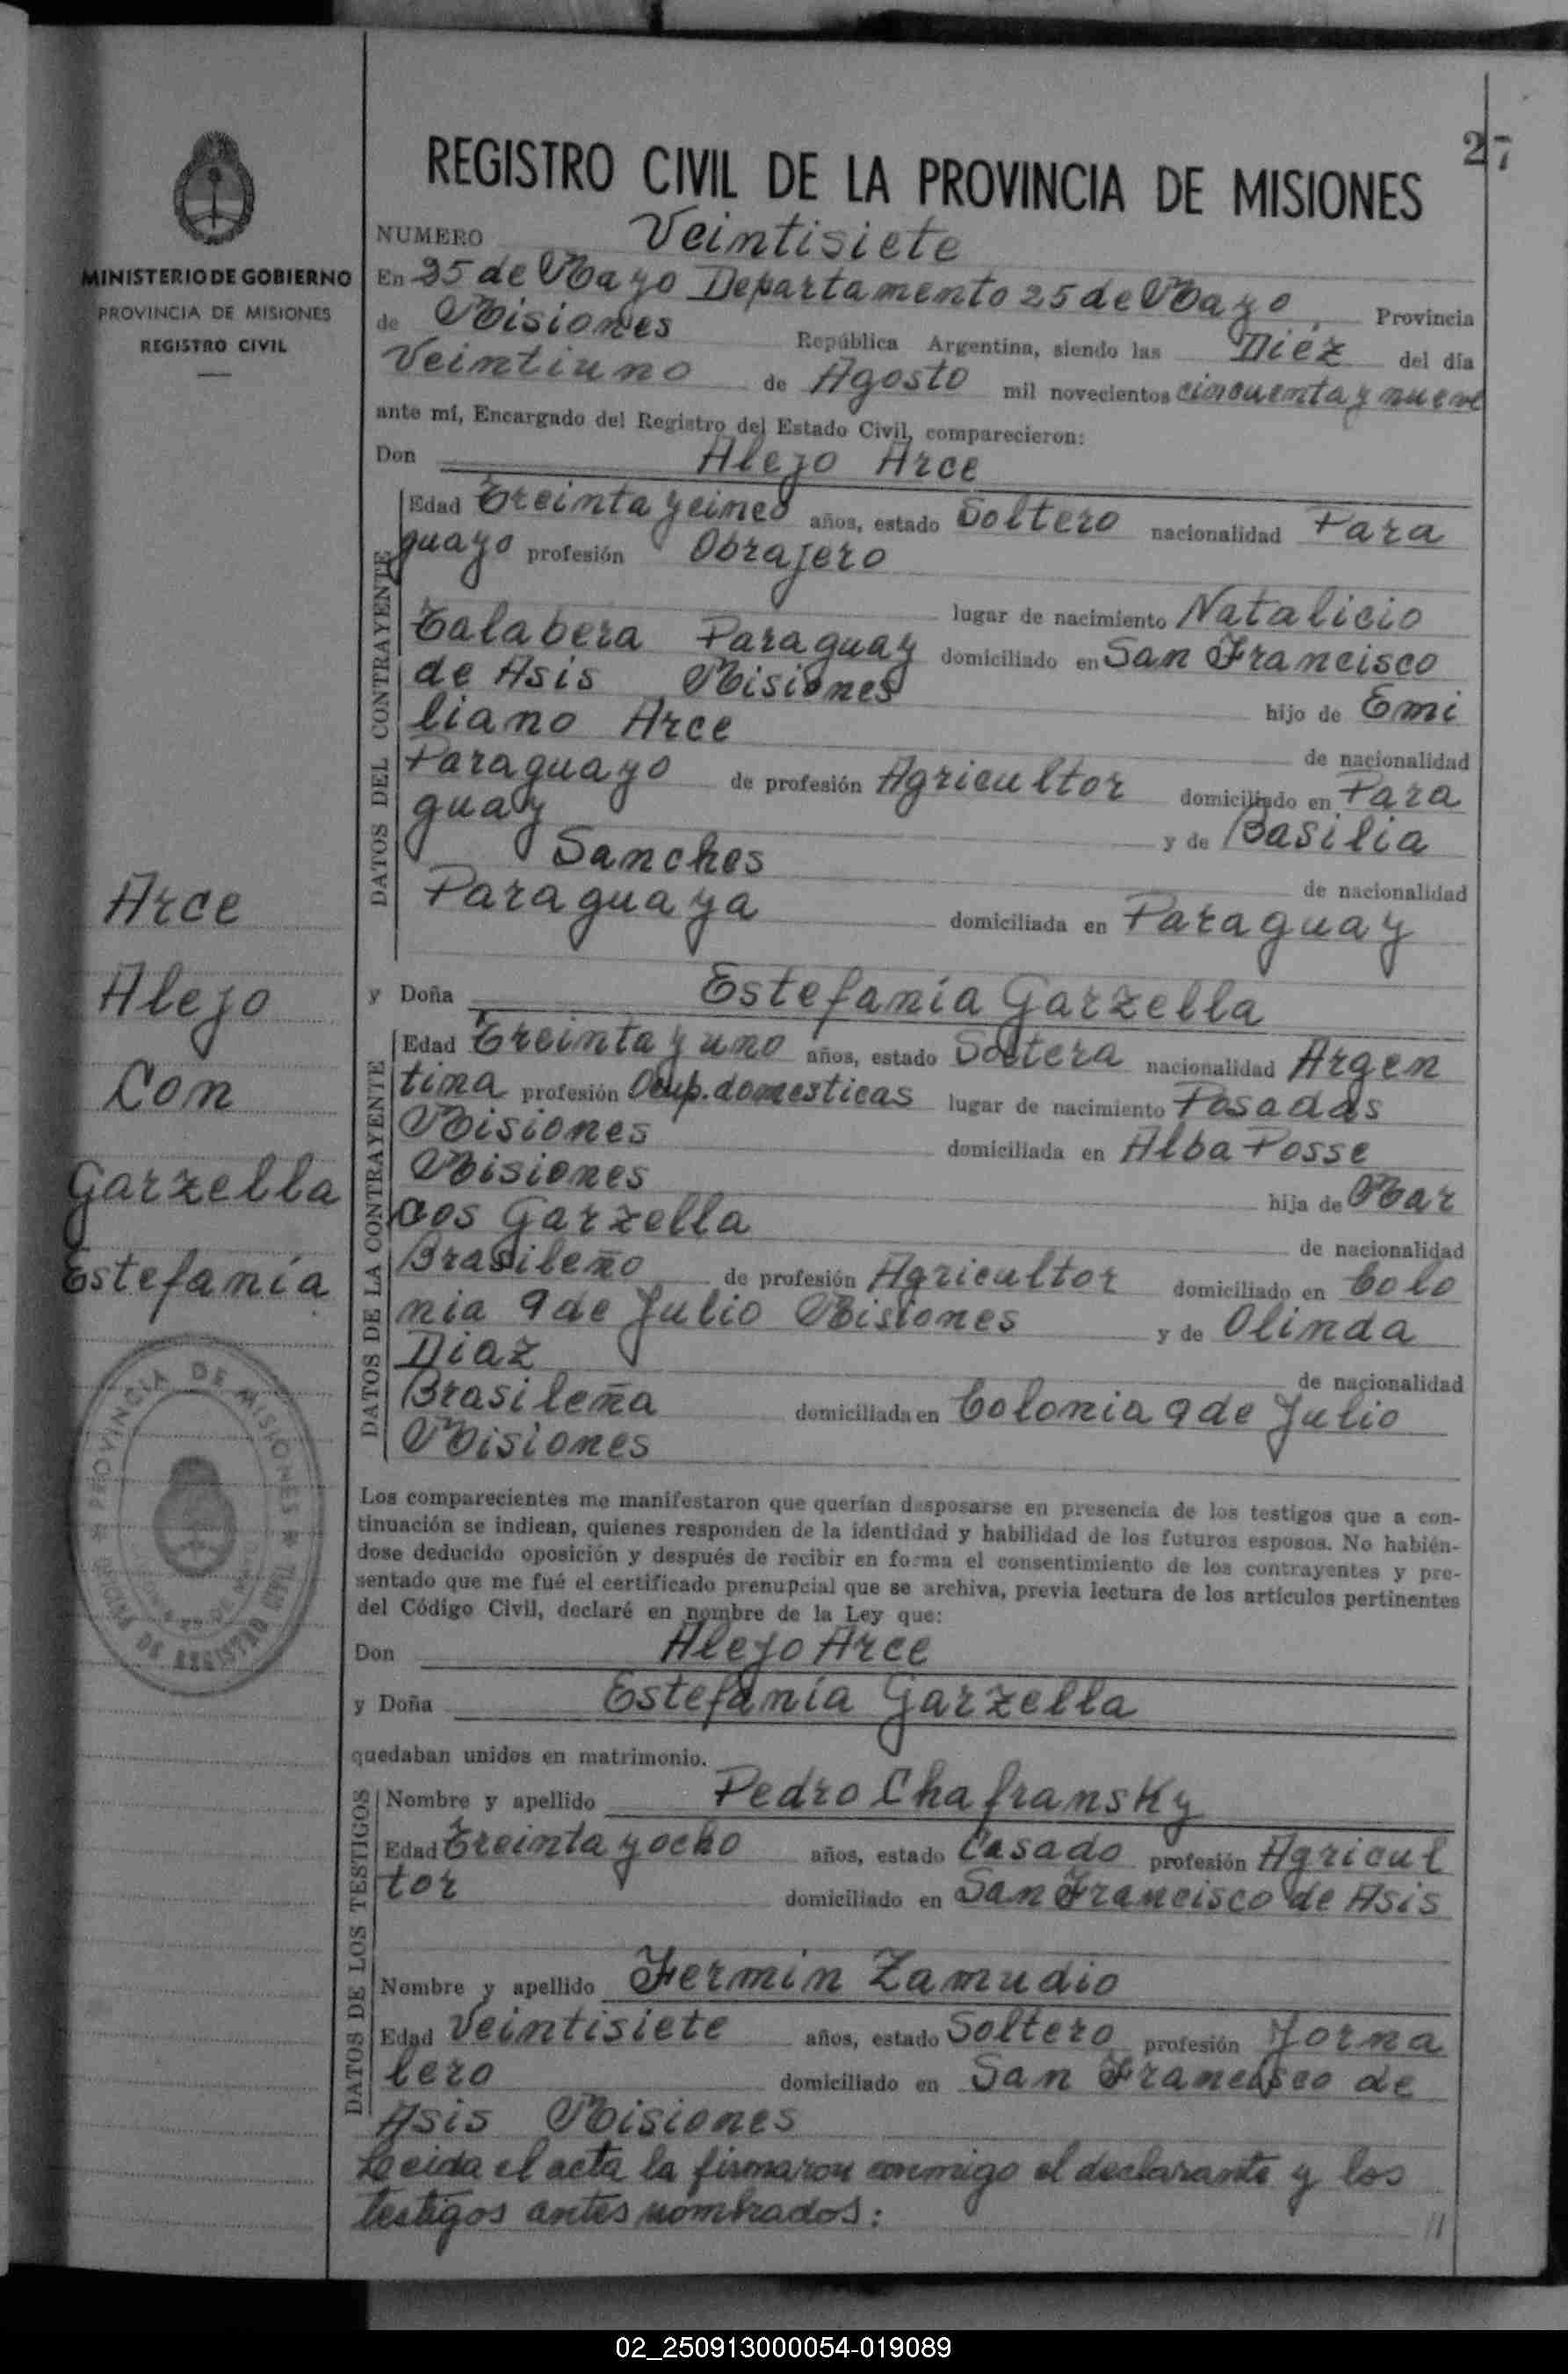 27
REGISTRO CIVIL DE LA PROVINCIA DE MISIONES
MINISTERIO DE GOBIERNO
PROVINCIA DE MISIONES
REGISTRO CIVIL
NUMERO Veintisiete
En 25 de Mayo Departamento 25 de Mayo Provincia
de Misiones República Argentina, siendo las Diéz del día
Veintiuno de Agosto mil novecientos cincuenta y nueve
ante mí, Encargado del Registro del Estado Civil, comparecieron:
Don Alejo Arce
DATOS DEL CONTRAYENTE
Edad Treinta y cinco años, estado Soltero nacionalidad Para
guayo profesión Obrajero
lugar de nacimiento Natalicio
Talabera Paraguay domiciliado en San Francisco
de Asis Misiones
hijo de Emi
liano Arce
de nacionalidad
Paraguayo de profesión Agricultor domiciliado en Para
guay y de Basilia
Sanches
de nacionalidad
Paraguaya domiciliada en Paraguay
y Doña Estefanía Garzella
DATOS DE LA CONTRAYENTE
Edad Treinta y uno años, estado Soltera nacionalidad Argen
tina profesión Ocup. domesticas lugar de nacimiento Posadas
Misiones domiciliada en Alba Posse
Misiones
hija de Mar
cos Garzella
de nacionalidad
Brasileño de profesión Agricultor domiciliado en Colo
nia 9 de Julio Misiones y de Olinda
Diaz
de nacionalidad
Brasileña domiciliada en Colonia 9 de Julio
Misiones
Arce
Alejo
Con
Garzella
Estefanía
PROVINCIA DE MISIONES
Los comparecientes me manifestaron que querían desposarse en presencia de los testigos que a con-
tinuación se indican, quienes responden de la identidad y habilidad de los futuros esposos. No habién-
dose deducido oposición y después de recibir en forma el consentimiento de los contrayentes y pre-
sentado que me fué el certificado prenupcial que se archiva, previa lectura de los artículos pertinentes
del Código Civil, declaré en nombre de la Ley que:
Don Alejo Arce
y Doña Estefanía Garzella
quedaban unidos en matrimonio.
DATOS DE LOS TESTIGOS
Nombre y apellido Pedro Chafransky
Edad Treinta y ocho años, estado Casado profesión Agricul
tor domiciliado en San Francisco de Asis
Nombre y apellido Fermin Zamudio
Edad Veintisiete años, estado Soltero profesión Jorna
lero domiciliado en San Francisco de
Asis Misiones
Leida el acta la firmaron conmigo el declarante y los
testigos antes nombrados: //
02_250913000054-019089